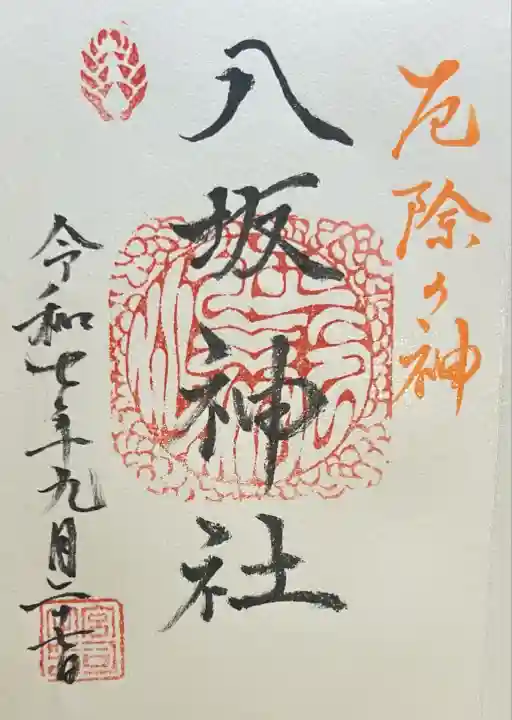 厄除の神
八坂神社
令和七年九月二十七日